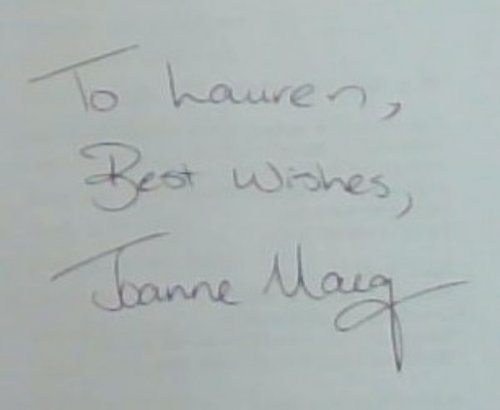 To Lauren,
Best Wishes,
Joanne